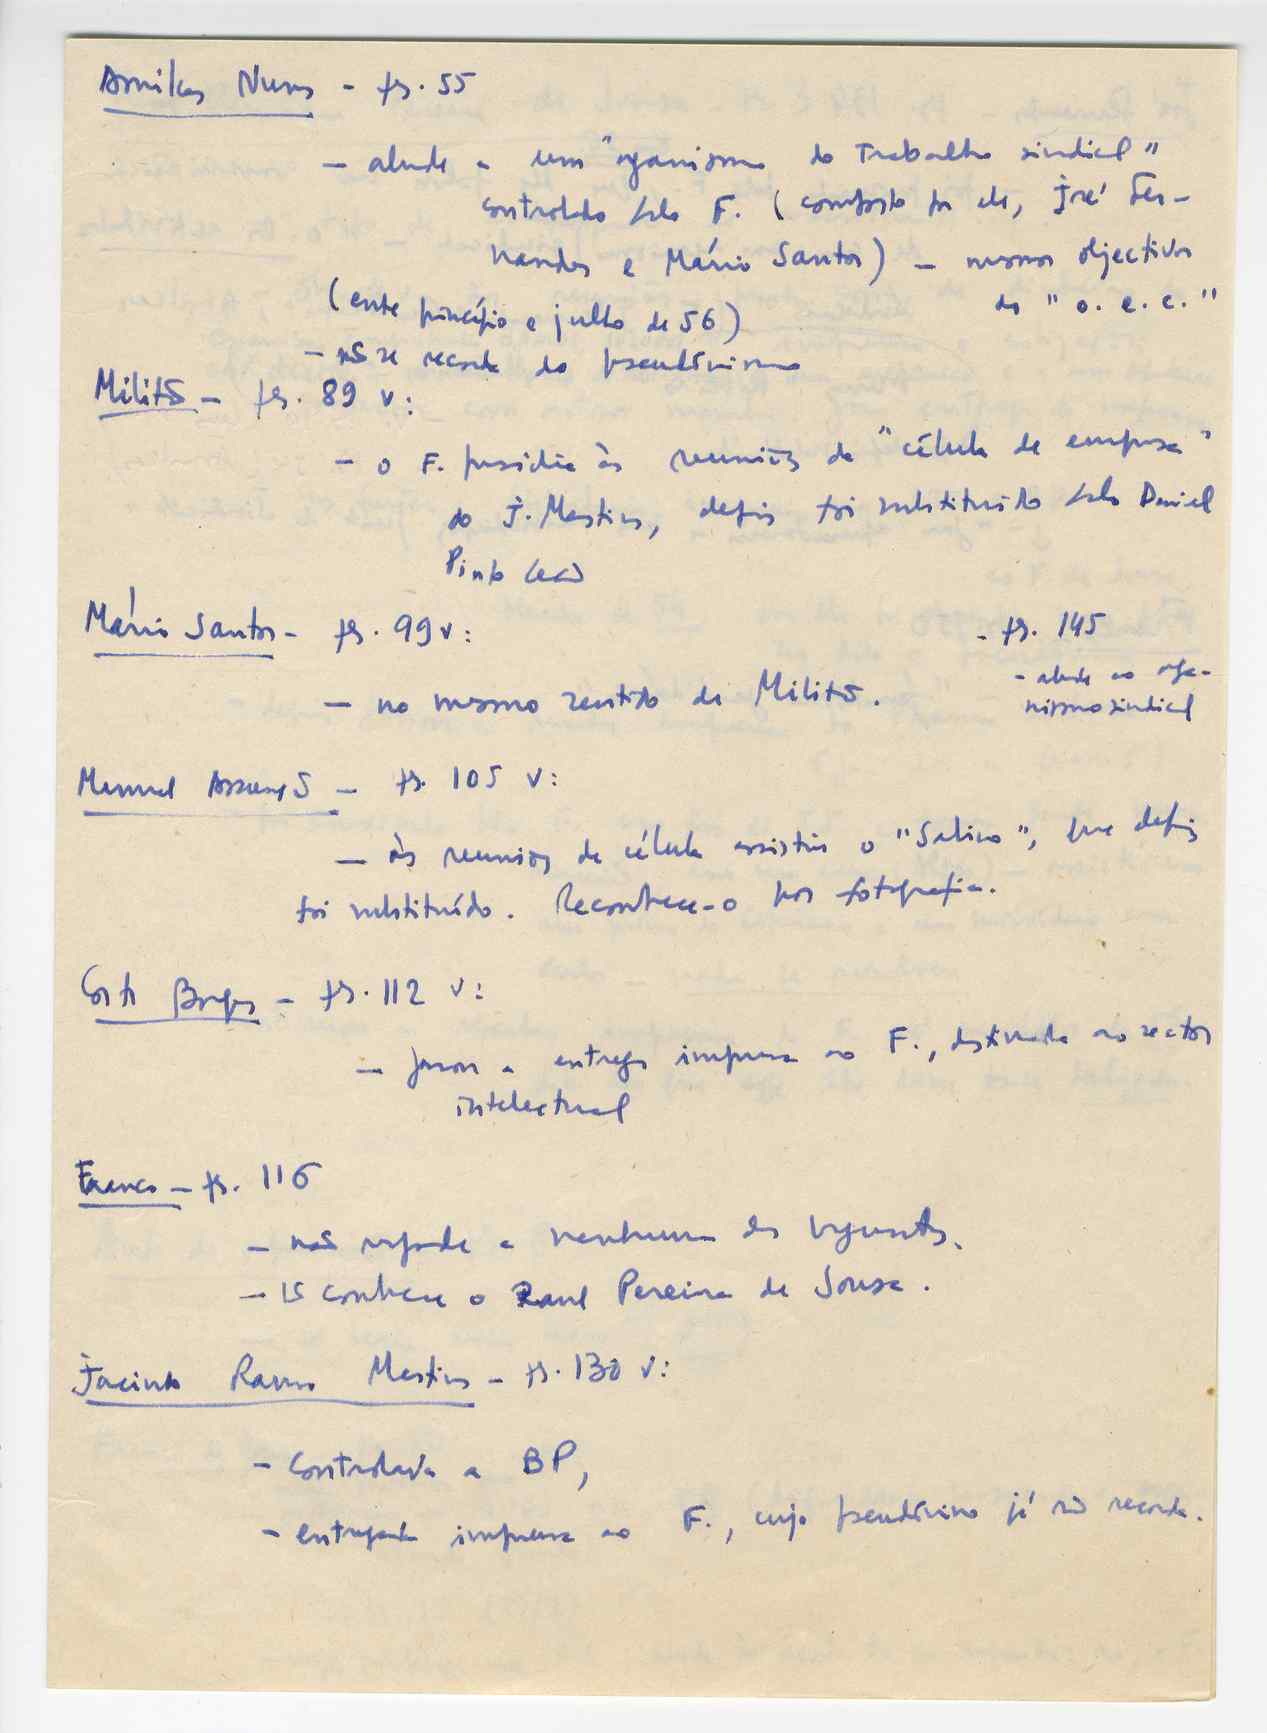 Nunes - fls. 55
- alude a um "organismo do trabalho sindical"
controlado pelo F. (composto por ele, José Fer-
nandes e Mário Santos) - mesmos objectivos
(entre princípio e julho de 56) do "o. e. c."
- não se recorda do pseudónimo
Militão - fls. 89 v:
- o F. presidia às reuniões da "célula de empresa"
do J. Martins, depois foi substituído pelo Daniel
Pinto
Mário Santos - fls. 99 v: - fls. 145
- no mesmo sentido de Militão. - alude ao orga-
nismo sindical
Manuel Assunção - fls. 105 v:
- às reuniões da célula assistiu o "Salino", que depois
foi substituído. Reconhece-o por fotografia.
Borges - fls. 112 v:
- passou a entregar imprensa ao F., destinada ao sector
intelectual
Franco - fls. 116
- não responde a nenhuma das perguntas.
- só conhece o Raul Pereira de Sousa.
Jacinto Ramos Martins - fls. 130 v:
- controlava a BP,
- entregava imprensa ao F., cujo pseudónimo já não recorda.